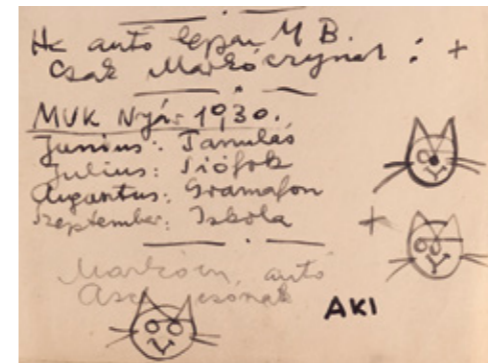 autó M B.
Csak Markóczynál : +
MVK Nyár 1930.
Junius: Tanulás
Julius: Siófok
Augusztus: Gramafon
Szeptember: Iskola
+
autó
csónak
AKI